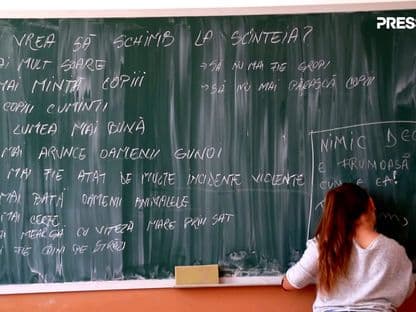 VREA SĂ SCHIMB LA SCÎNTEIA?
MAI MULT SOARE
MAI MINTĂ COPIII
COPII CUMINTI
LUMEA MAI BUNĂ
MAI ARUNCE OAMENII GUNOI
MAI FIE ATAT DE MULTE INCIDENTE VIOLENTE
MAI BATĂ OAMENII ANIMALELE
MAI CERȚE
MAI MEARGĂ CU VITEZĂ MARE PRIN SAT
FIE CÂINI PE STRĂZI
→ SĂ NU MAI FIE GROPI
→ SĂ NU MAI PĂRĂSCĂ COPIII
NIMIC DE
E FRUMOASĂ
CUM E EA!
PRESS